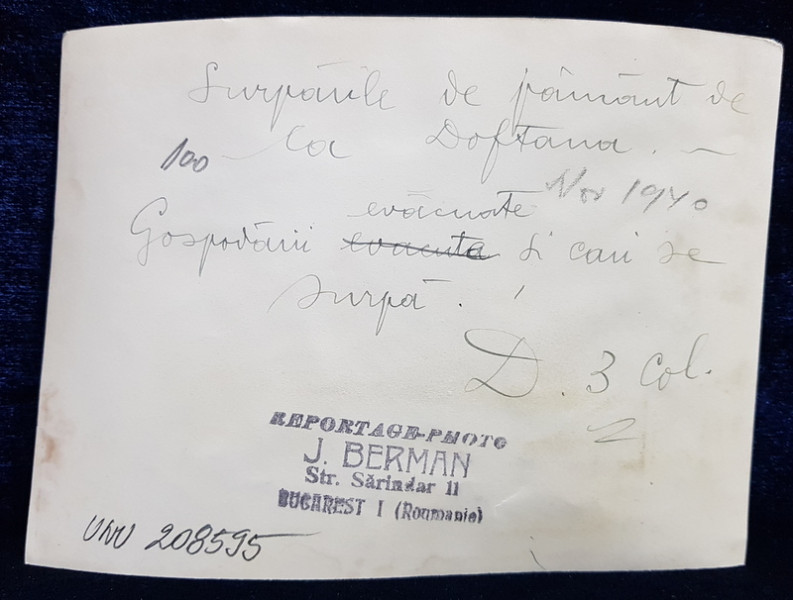 Surpările de pământ de
la Doftana. —
100
Nov 1940
evacuate
Gospodării evacuta și cari se
surpă.
D. 3 col.
2
REPORTAGE-PHOTO
J. BERMAN
Str. Sărindar 11
BUCAREST I (Roumanie)
208595